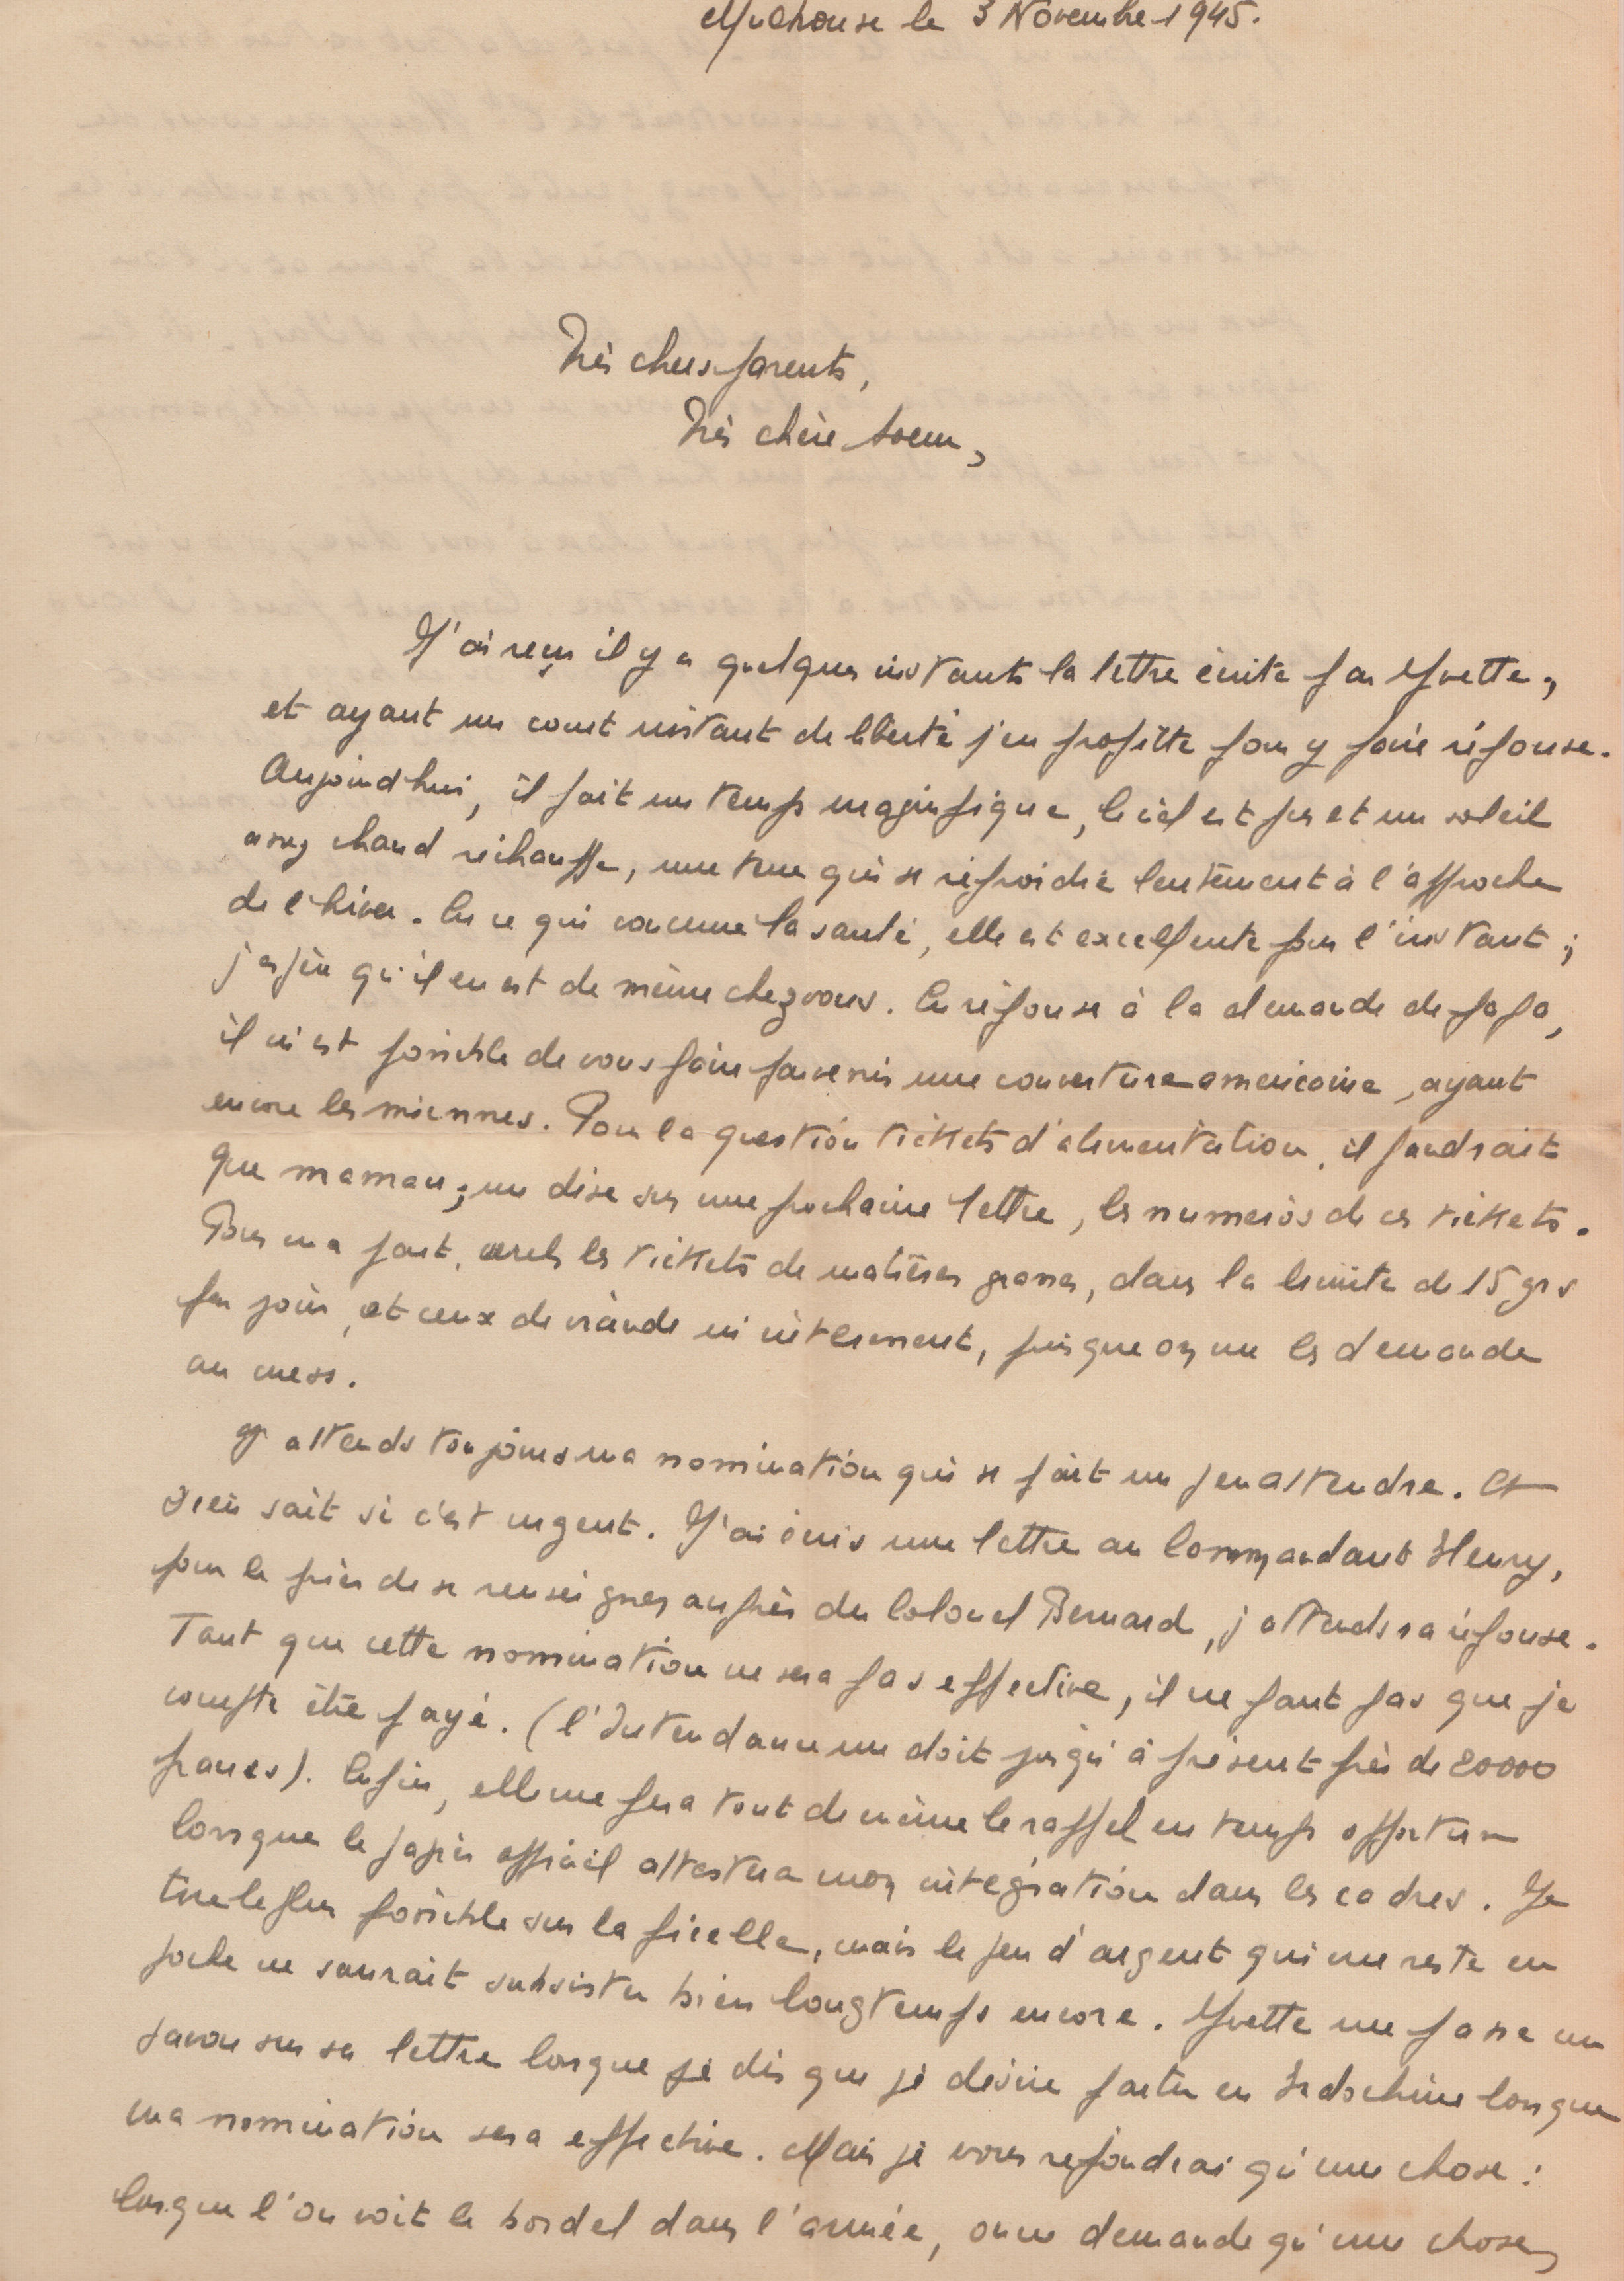 Mulhouse le 3 Novembre 1945.
Très chers parents,
Très chère soeur,
J'ai reçu il y a quelques instants la lettre écrite par Yvette,
et ayant un court instant de liberté j'en profitte pour y faire réponse.
Aujourd'hui, il fait un temps maginfique, le ciel est pur et un soleil
assez chaud réchauffe, une terre qui se refroidie lentement à l'approche
de l'hiver. En ce qui concerne la santé, elle est excellente pour l'instant ;
j'espère qu'il en est de même chez vous. En réponse à la demande de papa,
il m'est possible de vous faire parvenir une couverture americaine, ayant
encore les miennes. Pour la question tickets d'alimentation, il faudrait
que maman, me dise sur une prochaine lettre, les numeros de ces tickets.
Pour ma part, les tickets de matières grasses, dans la limite de 15 grs
par jour, et ceux de viande m'intéressent, puisque on me les demande
au mess.
J'attends toujours ma nomination qui se fait un peu attendre. Et
Dieu sait si c'est urgent. J'ai écris une lettre au Commandant Henry,
pour le prier de se renseigner auprès du Colonel Bernard, j'attends sa réponse.
Tant que cette nomination ne sera pas effective, il ne faut pas que je
compte être payé. (l'Intendance me doit jusqu'à présent près de 20000
francs). Enfin, elle me fera tout de même le rappel en temps opportun
lorsque le papier officiel attestera mon intégration dans les cadres. Je
tire le plus possible sur la ficelle, mais le peu d'argent qui me reste en
poche ne saurait subsister bien longtemps encore. Yvette me passe un
savon sur sa lettre lorsque je dis que je désire partir en Indochine lorsque
ma nomination sera effective. Mais je vous repondrai qu'une chose :
lorsque l'on voit le bordel dans l'armée, on ne demande qu'une chose,